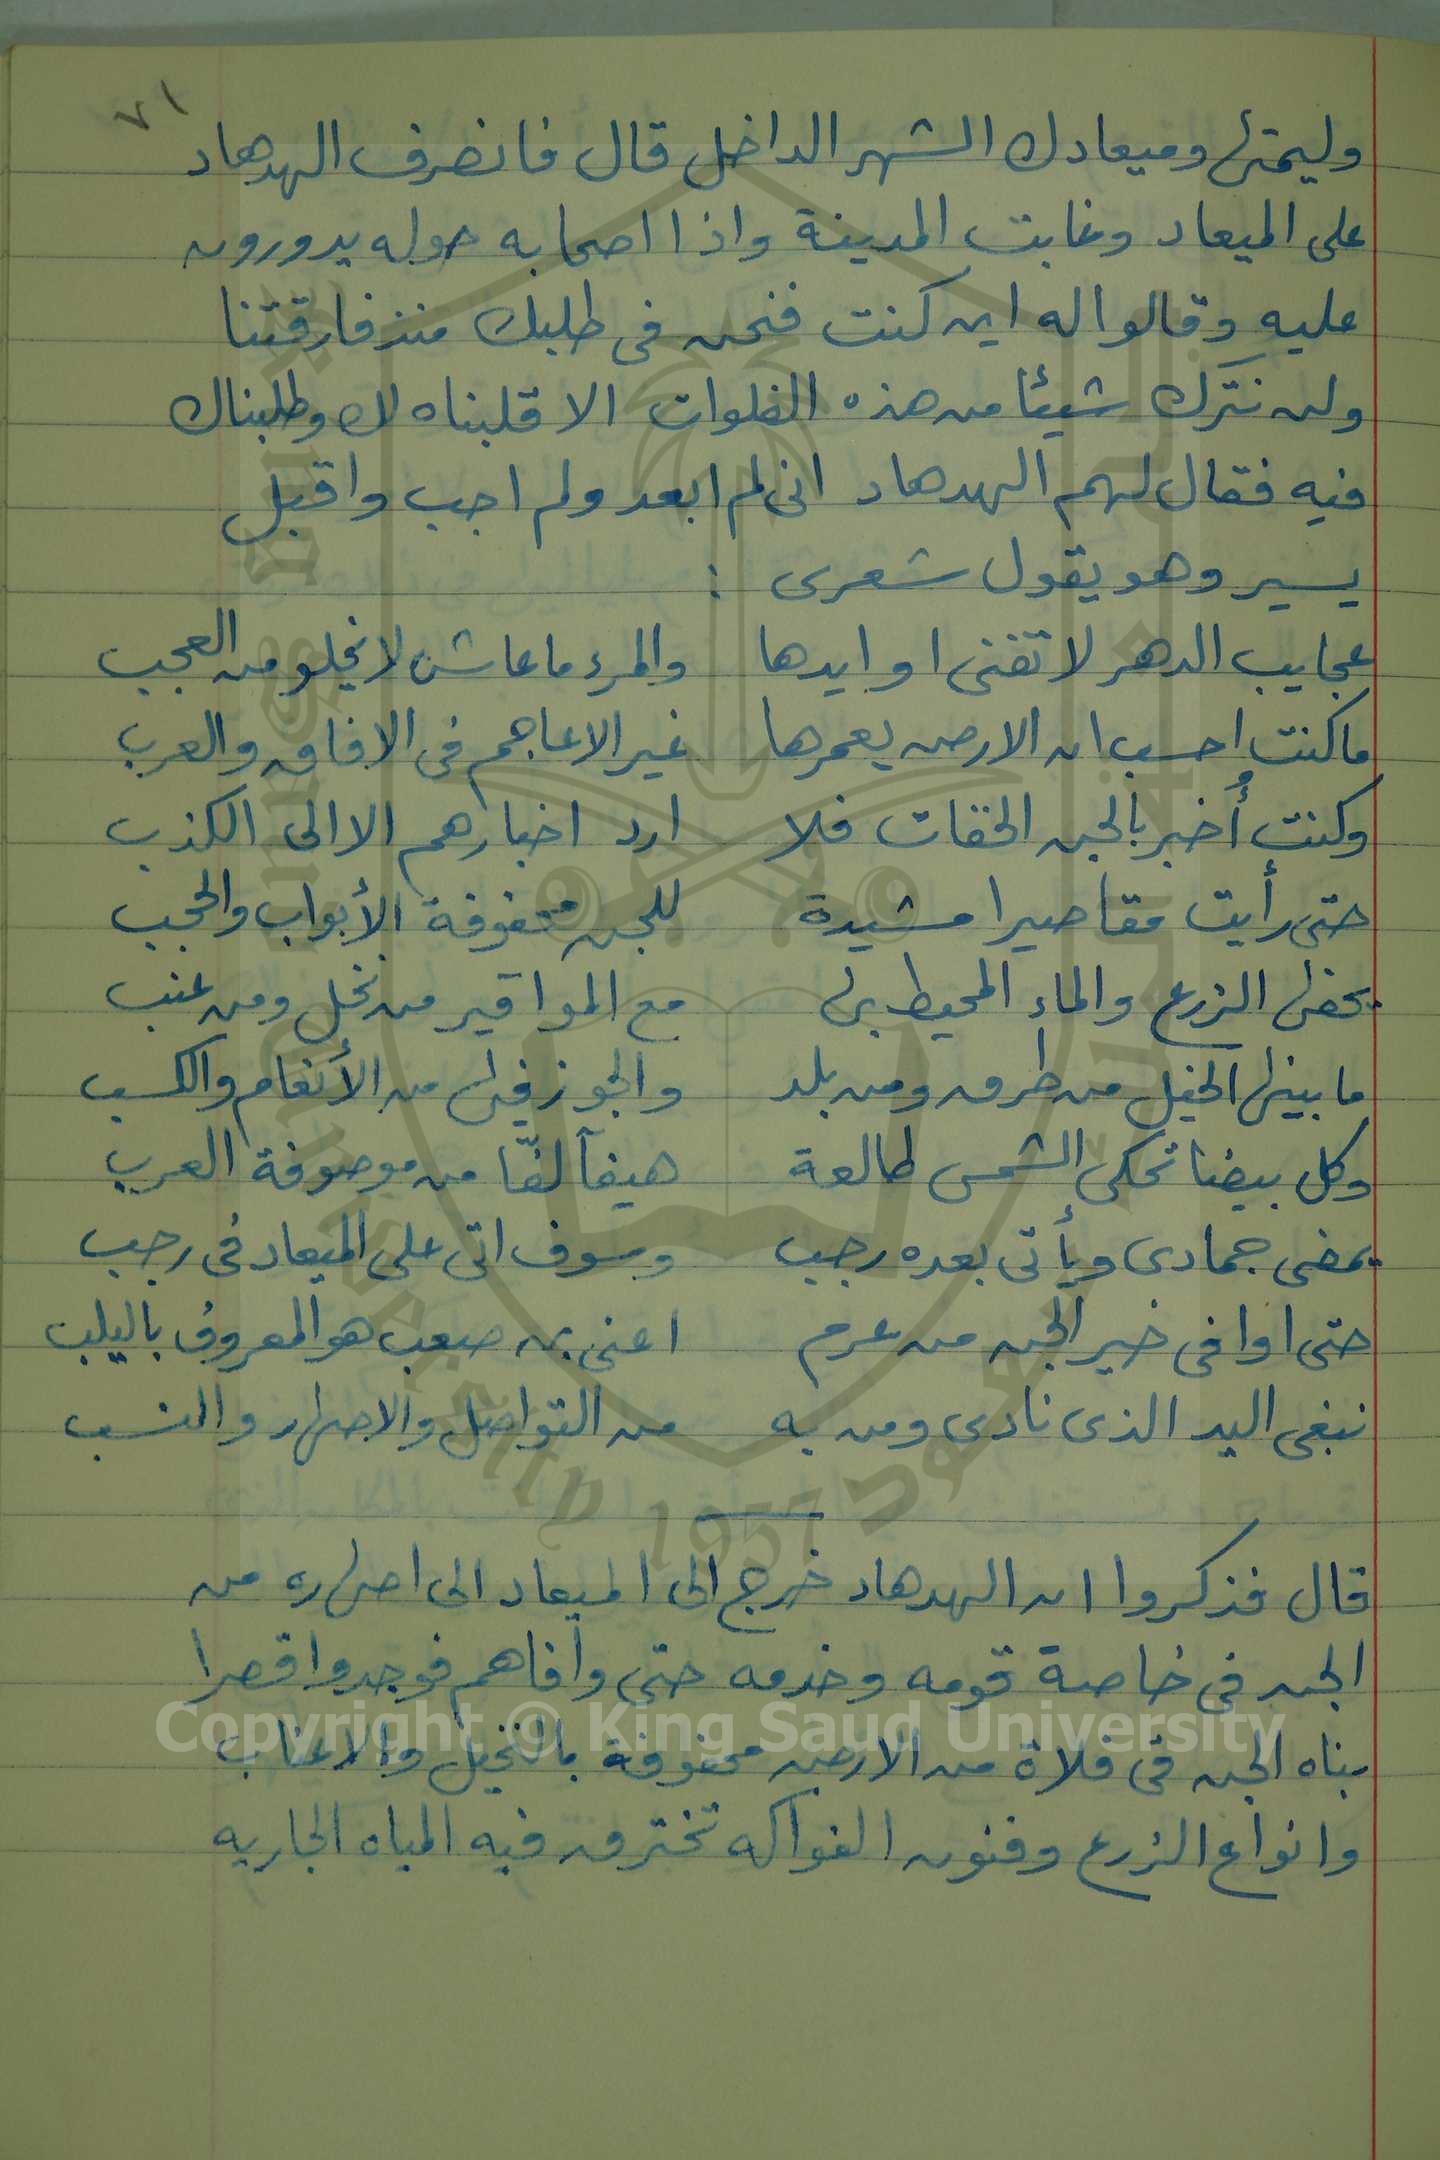 ٧١
وليمتها وميعادك الشهر الداخل قال فانصرف الهدهاد
على الميعاد وغابت المدينة واذا اصحابه حوله يدورون
عليه وقالوا له اين كنت فنحن فى طلبك منذ فارقتنا
ولن نترك شيئا من هذه الفلوات الا قلبناه لك وطلبناك
فيه فقال لهم الهدهاد انى لم ابعد ولم اجب واقبل
يسير وهو يقول شعرى :
عجايب الدهر لا تفنى اوايدها والمرء ما عاش لا يخلو من العجب
ما كنت احسب ان الارض يعمرها غير الاعاجم فى الافاق والعرب
وكنت أخبر بالجن الخفات فلا ارد اخبارهم الا الى الكذب
حتى رأيت مقاصيرا مشيدة للجن محفوفة الأبواب والحجب
يحفها الزرع والماء المحيط بها مع المواقير من نخل ومن عنب
ما بينها الخيل من طرف ومن بلد والجوز فيها من الأنعام والكسب
وكل بيضا تحكى الشمس طالعة هيفآ لفّا من موصوفة العرب
يمضى جمادى ويأتى بعده رجب وسوف اتى على الميعاد فى رجب
حتى اوافى خير الجن من عرم اعنى بن صعب هو المعروف باليلب
نبغى اليد الذى نادى ومن به من التواصل والاصهار والنسب
قال فذكروا ان الهدهاد خرج الى الميعاد الى اصهاره من
الجن فى خاصة قومه وخدمه حتى وافاهم فوجدوا قصرا
بناه الجن فى فلاة من الارض محفوفة بالنخيل والاعناب
وانواع الزرع وفنون الفواكه تخترق فيه المياه الجاريه
Copyright © King Saud University
King Saud University 1957